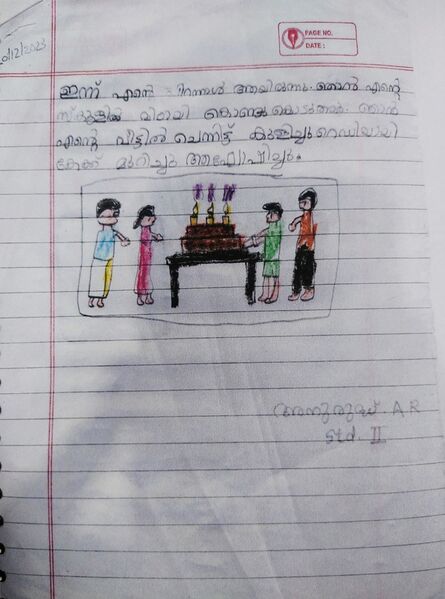 0/12/2023
PAGE NO.
DATE :
ഇന്ന് എന്റെ പിറന്നാൾ ആയിരുന്നു. ഞാൻ എന്റെ
സ്കൂളിൽ മിഠായി കൊണ്ടു കൊടുത്തു. ഞാൻ
എന്റെ വീട്ടിൽ ചെന്നിട്ട് കുളിച്ചു റെഡിയായി
കേക്ക് മുറിച്ചു ആഘോഷിച്ചു.
അനുരുദ്ധ്. A R
Std. II